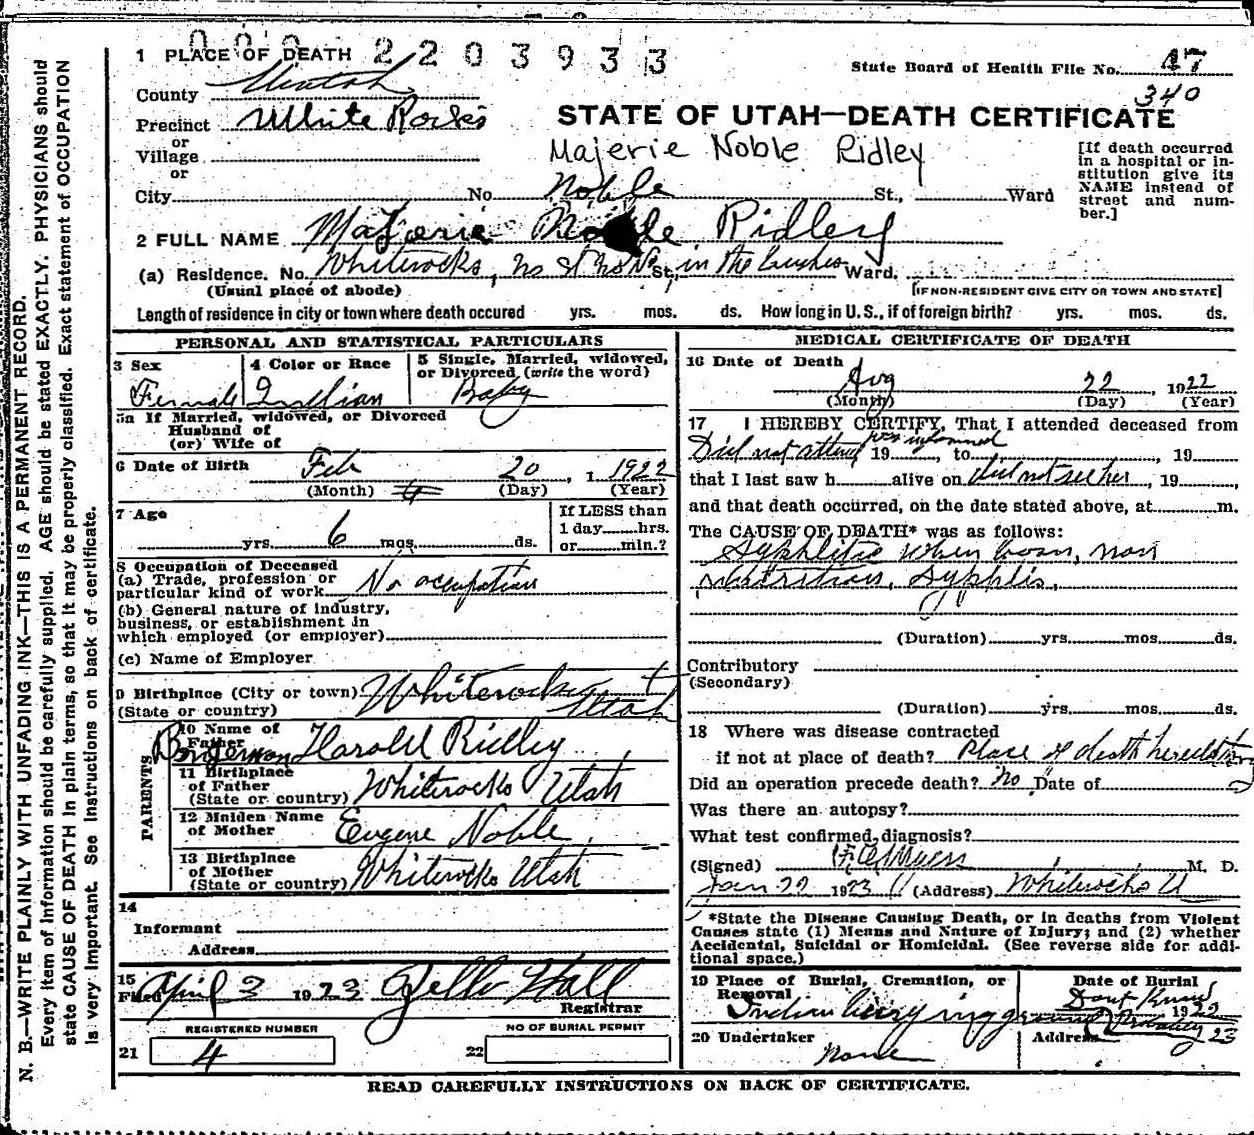 0 0 0 2 2 0 3 9 3 3
1 PLACE OF DEATH
State Board of Health File No. 47
340
County Uintah
Precinct White Rocks
or
Village
or
STATE OF UTAH—DEATH CERTIFICATE
Majerie Noble Ridley
[If death occurred
in a hospital or in-
stitution give its
NAME instead of
street and num-
ber.]
City No. Noble St., Ward
2 FULL NAME Majorie Noble Ridley
(a) Residence. No. Whiterocks, no St no No St., in the bushes Ward,
(Usual place of abode) [IF NON-RESIDENT GIVE CITY OR TOWN AND STATE]
Length of residence in city or town where death occured yrs. mos. ds. How long in U. S., if of foreign birth? yrs. mos. ds.
PERSONAL AND STATISTICAL PARTICULARS
3 Sex
Female
4 Color or Race
Indian
5 Single, Married, widowed,
or Divorced (write the word)
Baby
5a If Married, widowed, or Divorced
Husband of
(or) Wife of
6 Date of Birth Feb 20, 1 1922
(Month) 4 (Day) (Year)
7 Age
yrs. 6 mos. ds.
If LESS than
1 day hrs.
or min.?
8 Occupation of Deceased
(a) Trade, profession or
particular kind of work No occupation
(b) General nature of industry,
business, or establishment in
which employed (or employer)
(c) Name of Employer
9 Birthplace (City or town) Whiterocks
(State or country) Utah
PARENTS
10 Name of
Father Harold Ridley
11 Birthplace
of Father
(State or country) Whiterocks Utah
12 Maiden Name
of Mother Eugene Noble
13 Birthplace
of Mother
(State or country) Whiterocks Utah
14
Informant
Address
15
Filed April 3 1923 Zella Hall
Registrar
REGISTERED NUMBER
21 4
NO OF BURIAL PERMIT
22
MEDICAL CERTIFICATE OF DEATH
16 Date of Death
Aug 22, 1922
(Month) (Day) (Year)
17 I HEREBY CERTIFY, That I attended deceased from
Did not attend was informed 19, to , 19
that I last saw h alive on did not see her, 19,
and that death occurred, on the date stated above, at m.
The CAUSE OF DEATH* was as follows:
Syphlitic when born, non
nutrition, Syphlis,
(Duration) yrs. mos. ds.
Contributory
(Secondary)
(Duration) yrs. mos. ds.
18 Where was disease contracted
if not at place of death? Place of death
Did an operation precede death? No Date of
Was there an autopsy?
What test confirmed diagnosis?
(Signed) Myers M. D.
Jan 22 1923 (Address) Whiterocks U
*State the Disease Causing Death, or in deaths from Violent
Causes state (1) Means and Nature of Injury; and (2) whether
Accidental, Suicidal or Homicidal. (See reverse side for addi-
tional space.)
19 Place of Burial, Cremation, or
Removal
Indian
Date of Burial
Dont Know
1922
23
20 Undertaker
None
Address
READ CAREFULLY INSTRUCTIONS ON BACK OF CERTIFICATE.
N. B.—WRITE PLAINLY WITH UNFADING INK—THIS IS A PERMANENT RECORD.
Every item of information should be carefully supplied. AGE should be stated EXACTLY. PHYSICIANS should
state CAUSE OF DEATH in plain terms, so that it may be properly classified. Exact statement of OCCUPATION
is very important. See instructions on back of certificate.